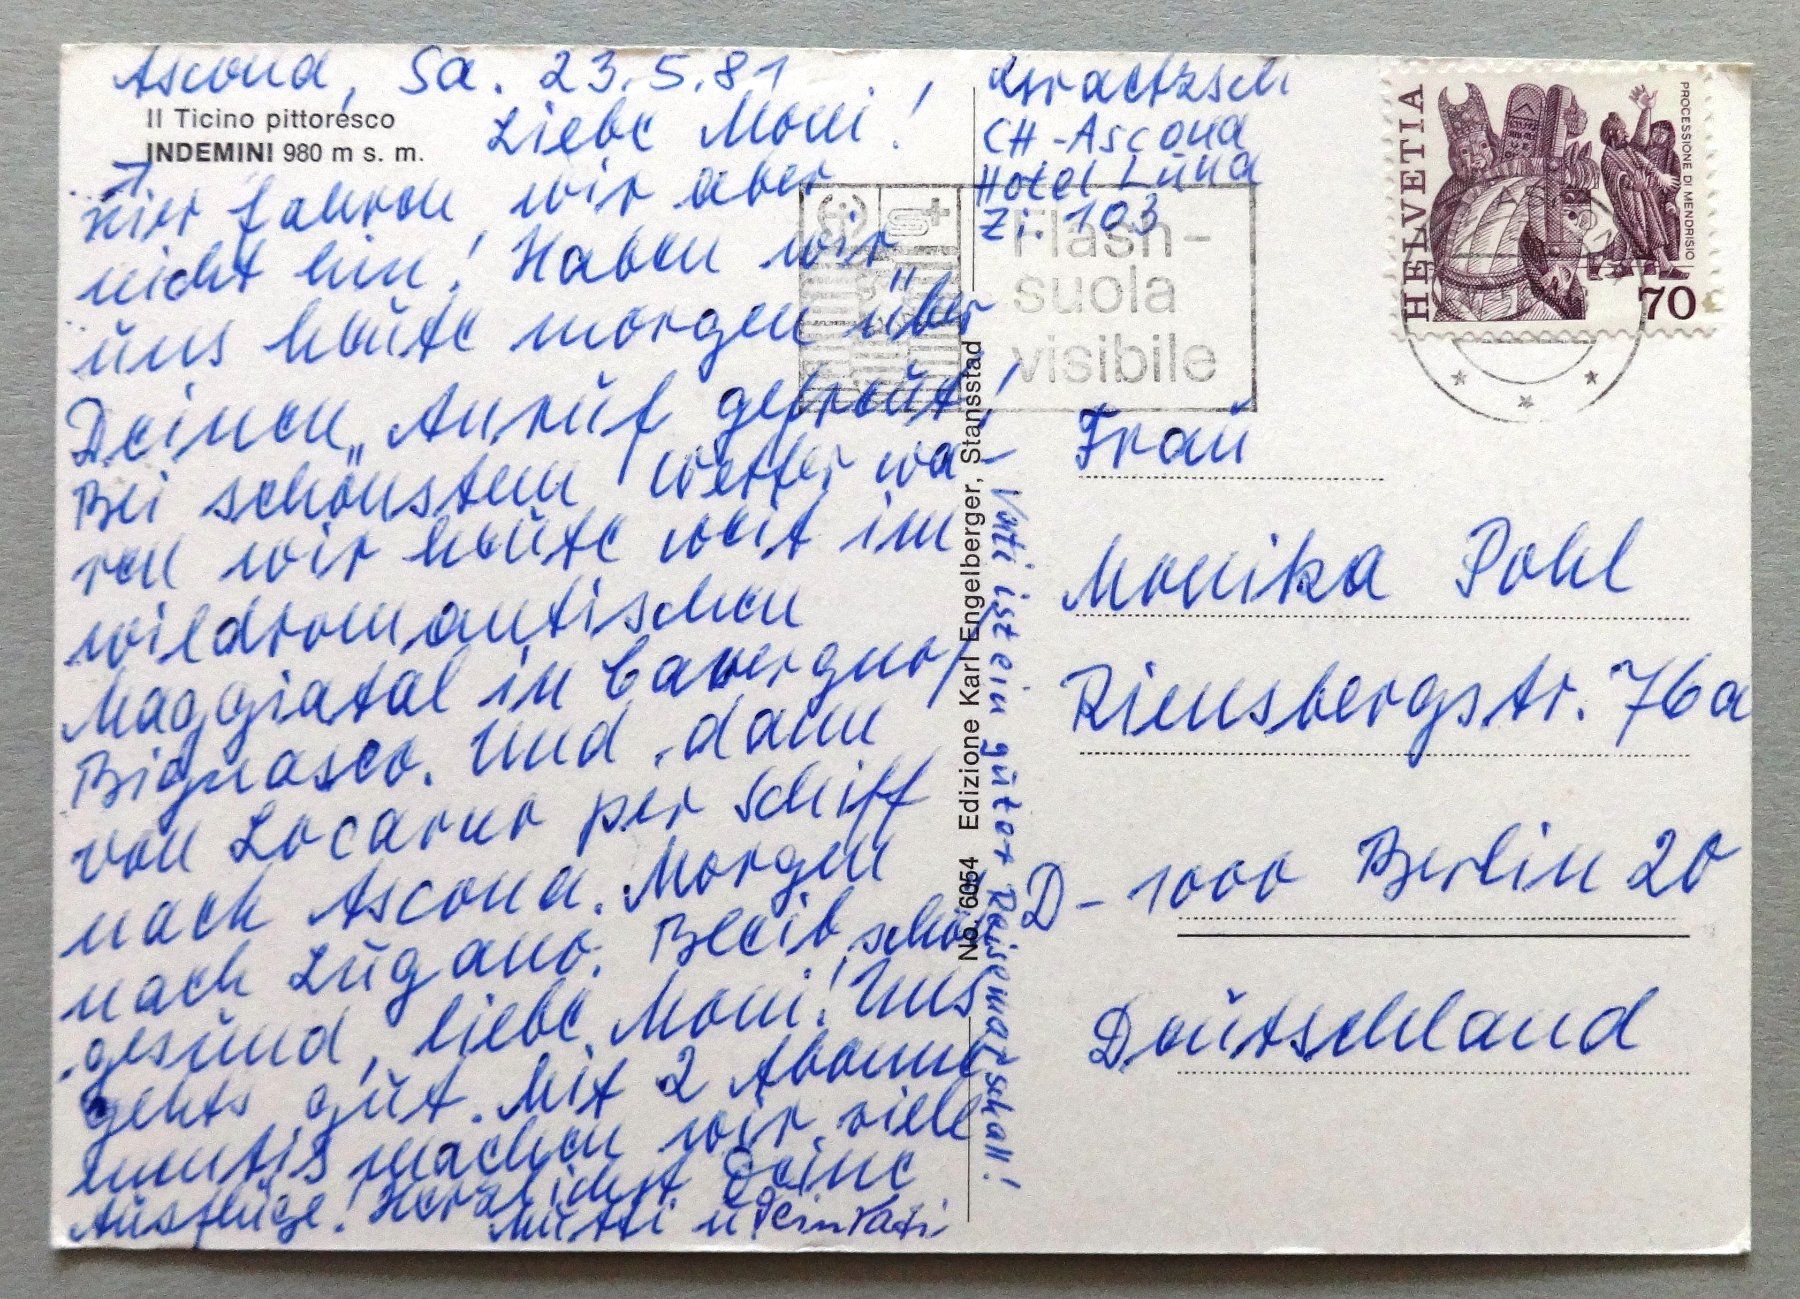 Ascona, Sa. 23.5.81
Il Ticino pittoresco
INDEMINI 980 m s. m.
Liebe Moni!
Hier fahren wir aber
nicht hin! Haben wir
uns heute morgen über
Deinen Anruf gefreut!
Bei schönstem Wetter wa-
ren wir heute weit im
wildromantischen
Maggiatal in Cavergno/
Bignasco. Und dann
von Locarno per Schiff
nach Ascona. Morgen
nach Lugano. Bleib schön
gesund, liebe Moni! Uns
gehts gut. Mit 2 Abonne
mentis machen wir viele
Ausflüge! Herzlichst Deine
Mutti u Dein Vati
Vati ist ein guter Reisemarschall!
No. 6054 Edizione Karl Engelberger, Stansstad
CH-Ascona
Hotel Luna
Zi. 103
Flash-
suola
visibile
HELVETIA
PROCESSIONE DI MENDRISIO
70
Frau
Monika Pohl
Riensbergstr. 76a
D-1000 Berlin 20
Deutschland